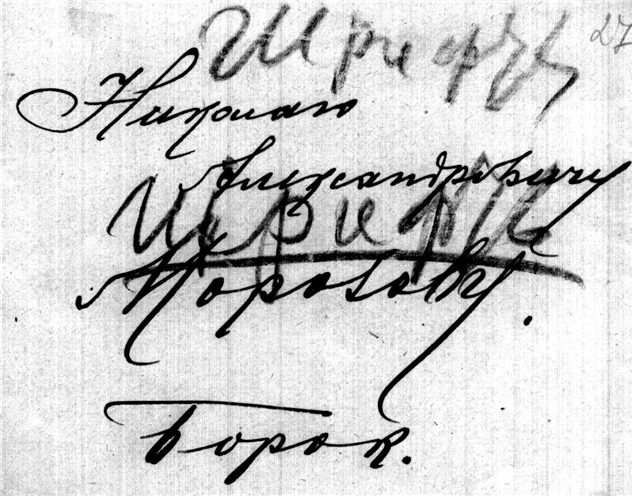 Шрифт
27
Николаю
Александровичу
Шрифт
Морозову.
Борок.